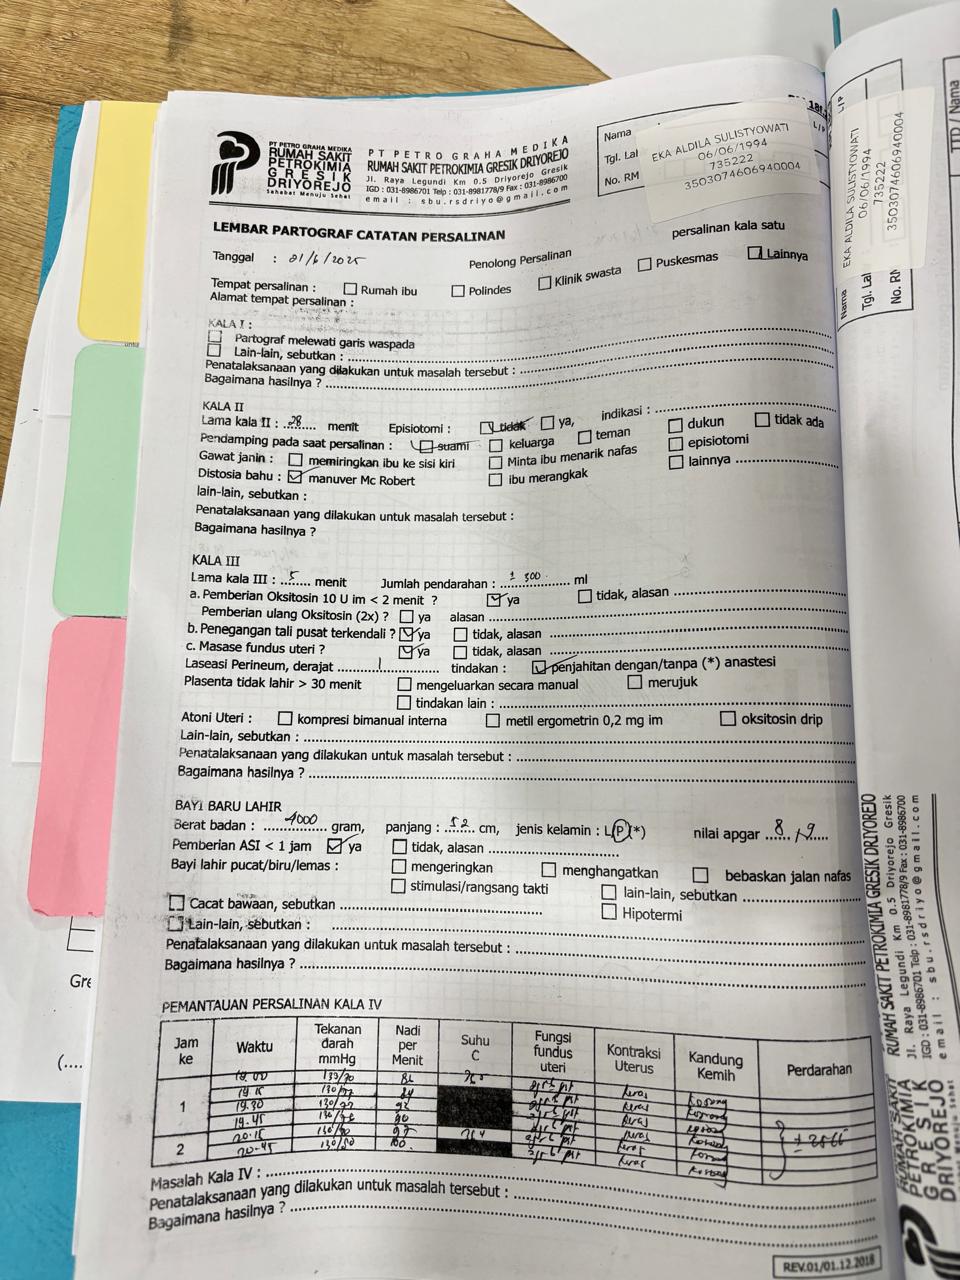 PT PETRO GRAHA MEDIKA
RUMAH SAKIT
PETROKIMIA
GRESIK
DRIYOREJO
Sahabat Menuju Sehat
PT PETRO GRAHA MEDIKA
RUMAH SAKIT PETROKIMIA GRESIK DRIYOREJO
Jl. Raya Legundi Km 0.5 Driyorejo Gresik
IGD : 031-8986701 Telp : 031-8981778/9 Fax : 031-8986700
email : sbu.rsdriyo@gmail.com
Nama
Tgl. Lal
No. RM
L/P
EKA ALDILA SULISTYOWATI
06/06/1994
735222
3503074606940004
LEMBAR PARTOGRAF CATATAN PERSALINAN
persalinan kala satu
Tanggal : 01/6/2025
Penolong Persalinan
Tempat persalinan : Rumah ibu Polindes Klinik swasta Puskesmas Lainnya
Alamat tempat persalinan :
KALA I :
Partograf melewati garis waspada
Lain-lain, sebutkan :
Penatalaksanaan yang dilakukan untuk masalah tersebut :
Bagaimana hasilnya ?
KALA II
Lama kala II : 28 menit Episiotomi : tidak ya, indikasi :
Pendamping pada saat persalinan : suami keluarga teman dukun tidak ada
Gawat janin : memiringkan ibu ke sisi kiri Minta ibu menarik nafas episiotomi
Distosia bahu : manuver Mc Robert ibu merangkak lainnya
lain-lain, sebutkan :
Penatalaksanaan yang dilakukan untuk masalah tersebut :
Bagaimana hasilnya ?
KALA III
Lama kala III : 5 menit Jumlah pendarahan : ± 300 ml
a. Pemberian Oksitosin 10 U im < 2 menit ? ya tidak, alasan
Pemberian ulang Oksitosin (2x) ? ya alasan
b. Penegangan tali pusat terkendali ? ya tidak, alasan
c. Masase fundus uteri ? ya tidak, alasan
Laseasi Perineum, derajat 1 tindakan : penjahitan dengan/tanpa (*) anastesi
Plasenta tidak lahir > 30 menit mengeluarkan secara manual merujuk
tindakan lain :
Atoni Uteri : kompresi bimanual interna metil ergometrin 0,2 mg im oksitosin drip
Lain-lain, sebutkan :
Penatalaksanaan yang dilakukan untuk masalah tersebut :
Bagaimana hasilnya ?
BAYI BARU LAHIR
Berat badan : 4000 gram, panjang : 52 cm, jenis kelamin : L/P(*) nilai apgar 8, 9
Pemberian ASI < 1 jam ya tidak, alasan
Bayi lahir pucat/biru/lemas : mengeringkan menghangatkan bebaskan jalan nafas
stimulasi/rangsang takti lain-lain, sebutkan
Cacat bawaan, sebutkan Hipotermi
Lain-lain, sebutkan :
Penatalaksanaan yang dilakukan untuk masalah tersebut :
Bagaimana hasilnya ?
PEMANTAUAN PERSALINAN KALA IV
Jam ke Waktu Tekanan darah mmHg Nadi per Menit Suhu C Fungsi fundus uteri Kontraksi Uterus Kandung Kemih Perdarahan
1 19.00 keras kosong
19.15 keras
19.30 keras
19.45 keras
2 20.15 keras
20.45 keras kosong
Masalah Kala IV :
Penatalaksanaan yang dilakukan untuk masalah tersebut :
Bagaimana hasilnya ?
REV.01/01.12.2018
Nama
Tgl. Lal
No. RM
L/P
EKA ALDILA SULISTYOWATI
06/06/1994
735222
3503074606940004
TTD / Nama
RUMAH SAKIT
PETROKIMIA
GRESIK
DRIYOREJO
Sahabat Menuju Sehat
RUMAH SAKIT PETROKIMIA GRESIK DRIYOREJO
Jl. Raya Legundi Km 0.5 Driyorejo Gresik
IGD : 031-8986701 Telp : 031-8981778/9 Fax : 031-8986700
email : sbu.rsdriyo@gmail.com